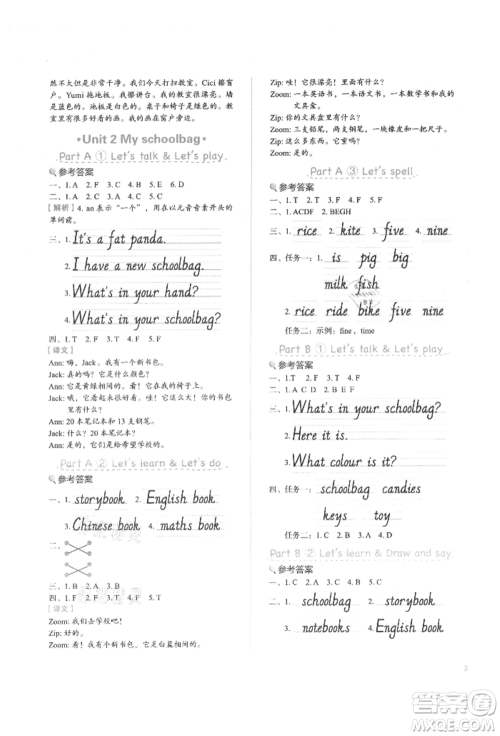 然大不但是非常干净。我们今天打扫教室。Cici 擦窗
户。Yumi 拖地板。我擦讲台。我的教室很漂亮。墙
是蓝色的。地板是白色的。桌子和椅子是绿色的。许
多花和一台电脑在窗户旁边。
·Unit 2 My schoolbag·
Part A ① Let's talk & Let's play
参考答案
一、1. A 2. F 3. C 二、1. T 2. F 3. F 4. T
[解析] 4. an 表示“一个”，用在以元音音素开头的
单词前。
三、1. It's a fat panda.
2. I have a new schoolbag.
3. What's in your hand?
4. What's in your schoolbag?
四、1. T 2. F 3. F 4. T 5. T
[译文]
Ann: 嗨，Jack。我有一个新书包。
Jack: 真的吗？它是什么颜色？
Ann: 它是黄绿相间的。它在我的椅子上。
Jack: 你的书包里有什么？
Ann: 20 本笔记本和 13 支钢笔。
Jack: 什么？20 本笔记本？
Ann: 是的。它们是给希望学校的。
Part A ② Let's learn & Let's do
参考答案
一、1. storybook 2. English book
3. Chinese book 4. maths book
二、
三、1. B 2. A 3. B 4. A
四、1. F 2. F 3. T 4. F 5. T
[译文]
Zoom: 我们去学校吧！
Zip: 好的。
Zoom: 我有一个新书包。它是白蓝相间的。
Zip: 哇！它很漂亮。里面有什么？
Zoom: 一本英语书，一本语文书，一本数学书和我的
文具盒。
Zip: 你的文具盒里有什么？
Zoom: 三支铅笔，两支钢笔，一块橡皮和一把尺子。
Zip: 这么多东西。
Part A ③ Let's spell
参考答案
一、1. T 2. F 3. T 4. F
二、1. ACDF 2. BEGH
三、1. rice 2. kite 3. five 4. nine
四、任务一：1. is pig big
milk fish
2. rice ride bike five nine
任务二：示例：fine，time
Part B ① Let's talk & Let's play
参考答案
一、1. T 2. F 二、1. ACD 2. BEF
三、1. What's in your schoolbag?
2. Here it is.
3. What colour is it?
四、任务一：1. schoolbag candies
keys toy
任务二：1. T 2. F 3. F
Part B ② Let's learn & Draw and say
参考答案
一、1. C 2. A 3. A 4. B
二、1. schoolbag 2. toy
3. notebooks 4. English book
三、1. F 2. F 3. T 4. F
3
答案圈
MXQE.COM